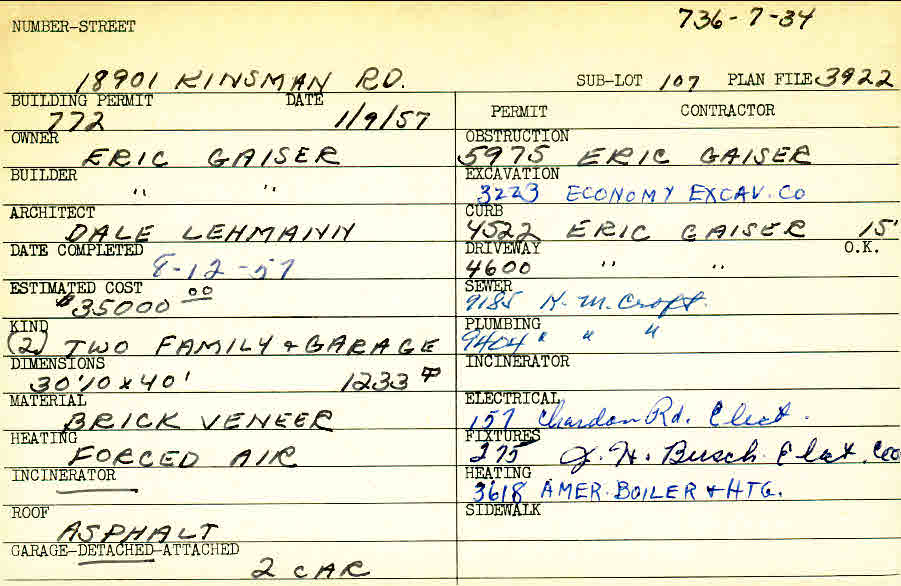 736-7-34
NUMBER-STREET
18901 KINSMAN RD.
SUB-LOT 107 PLAN FILE 3922
BUILDING PERMIT DATE
772 1/9/57
OWNER
ERIC GAISER
BUILDER
" "
ARCHITECT
DALE LEHMANN
DATE COMPLETED
8-12-57
ESTIMATED COST
$35000 00
KIND
(2) TWO FAMILY & GARAGE
DIMENSIONS
30'10 x 40' 1233
MATERIAL
BRICK VENEER
HEATING
FORCED AIR
INCINERATOR
ROOF
ASPHALT
GARAGE-DETACHED-ATTACHED
2 CAR
PERMIT CONTRACTOR
OBSTRUCTION
5975 ERIC GAISER
EXCAVATION
3223 ECONOMY EXCAV. CO
CURB
4522 ERIC GAISER 15'
DRIVEWAY O.K.
4600 " "
SEWER
9185 H. M. Croft.
PLUMBING
9404 " " "
INCINERATOR
ELECTRICAL
157 Chardon Rd. Elect.
FIXTURES
275 J. H. Busch Elect. Co
HEATING
3618 AMER. BOILER & HTG.
SIDEWALK